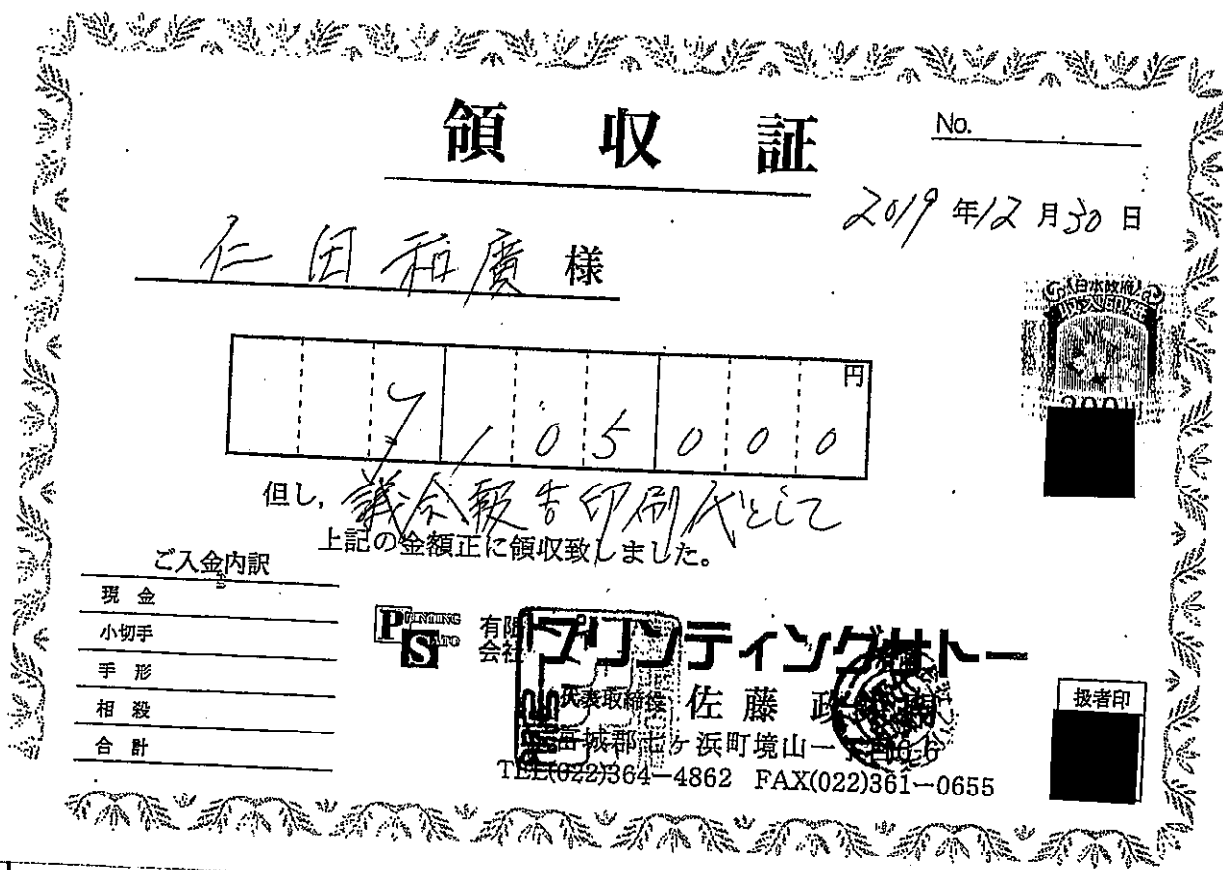 領収証
No.
2019年12月30日
仁田和廣 様
円
¥105000
但し、議会報告印刷代として
上記の金額正に領収致しました。
ご入金内訳
現金
小切手
手形
相殺
合計
PRINTING SATO
有限会社 プリンティングサトー
代表取締役 佐藤 政
宮城郡七ヶ浜町境山一丁目
TEL(022)364-4862 FAX(022)361-0655
扱者印
日本政府
収入印紙
200